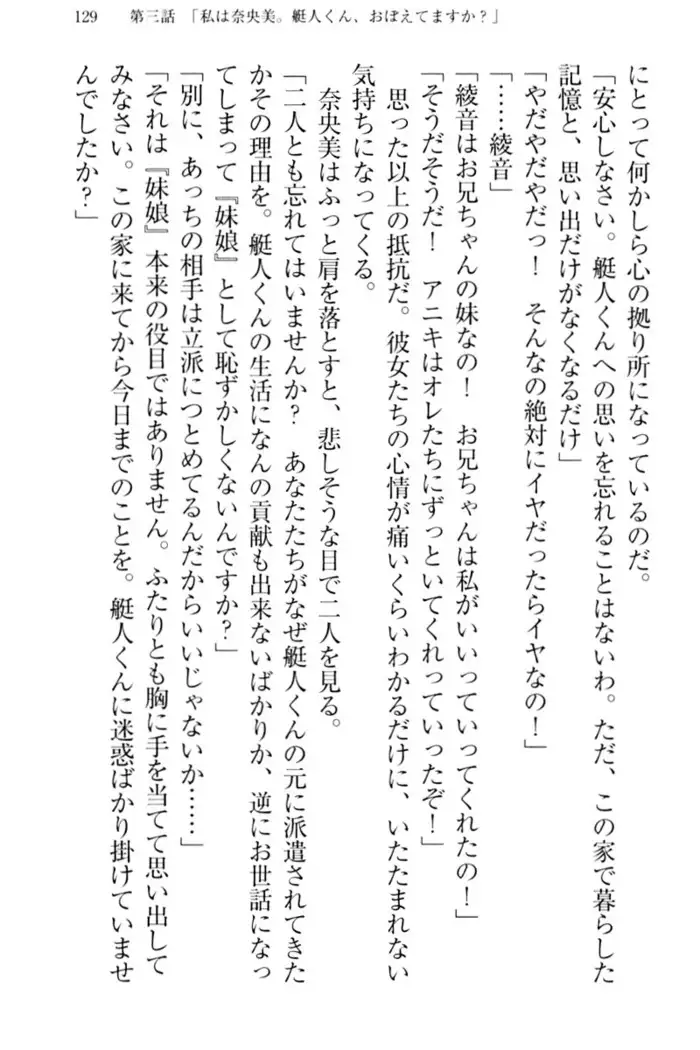 129　第三話　「私は奈央美。艇人くん、おぼえてますか？」
にとって何かしら心の拠り所になっているのだ。
「安心しなさい。艇人くんへの思いを忘れることはないわ。ただ、この家で暮らした
記憶と、思い出だけがなくなるだけ」
「やだやだやだっ！　そんなの絶対にイヤだったらイヤなの！」
「……綾音」
「綾音はお兄ちゃんの妹なの！　お兄ちゃんは私がいいっていってくれたの！」
「そうだそうだ！　アニキはオレたちにずっといてくれっていったぞ！」
　思った以上の抵抗だ。彼女たちの心情が痛いくらいわかるだけに、いたたまれない
気持ちになってくる。
　奈央美はふっと肩を落とすと、悲しそうな目で二人を見る。
「二人とも忘れてはいませんか？　あなたたちがなぜ艇人くんの元に派遣されてきた
かその理由を。艇人くんの生活になんの貢献も出来ないばかりか、逆にお世話になっ
てしまって『妹娘』として恥ずかしくないんですか？」
「別に、あっちの相手は立派につとめてるんだからいいじゃないか……」
「それは『妹娘』本来の役目ではありません。ふたりとも胸に手を当てて思い出して
みなさい。この家に来てから今日までのことを。艇人くんに迷惑ばかり掛けていませ
んでしたか？」